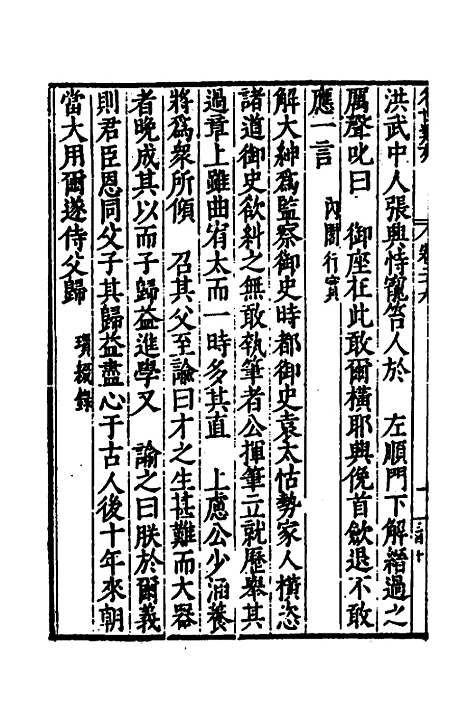 洪武中人張興恃寵笞人於　左順門下解縉過之
厲聲叱曰　御座在此敢爾橫耶興俛首歛退不敢
應一言　內閣行實
解大紳爲監察御史時都御史袁太怙勢家人橫恣
諸道御史欲糾之無敢執筆者公揮筆立就歷舉其
過章上雖曲宥太而一時多其直　上慮公少涵養
將爲衆所傾　召其父至諭曰才之生甚難而大器
者晚成其以而子歸益進學又　諭之曰朕於爾義
則君臣恩同父子其歸益盡心于古人後十年來朝
當大用爾遂侍父歸　瑣綴錄